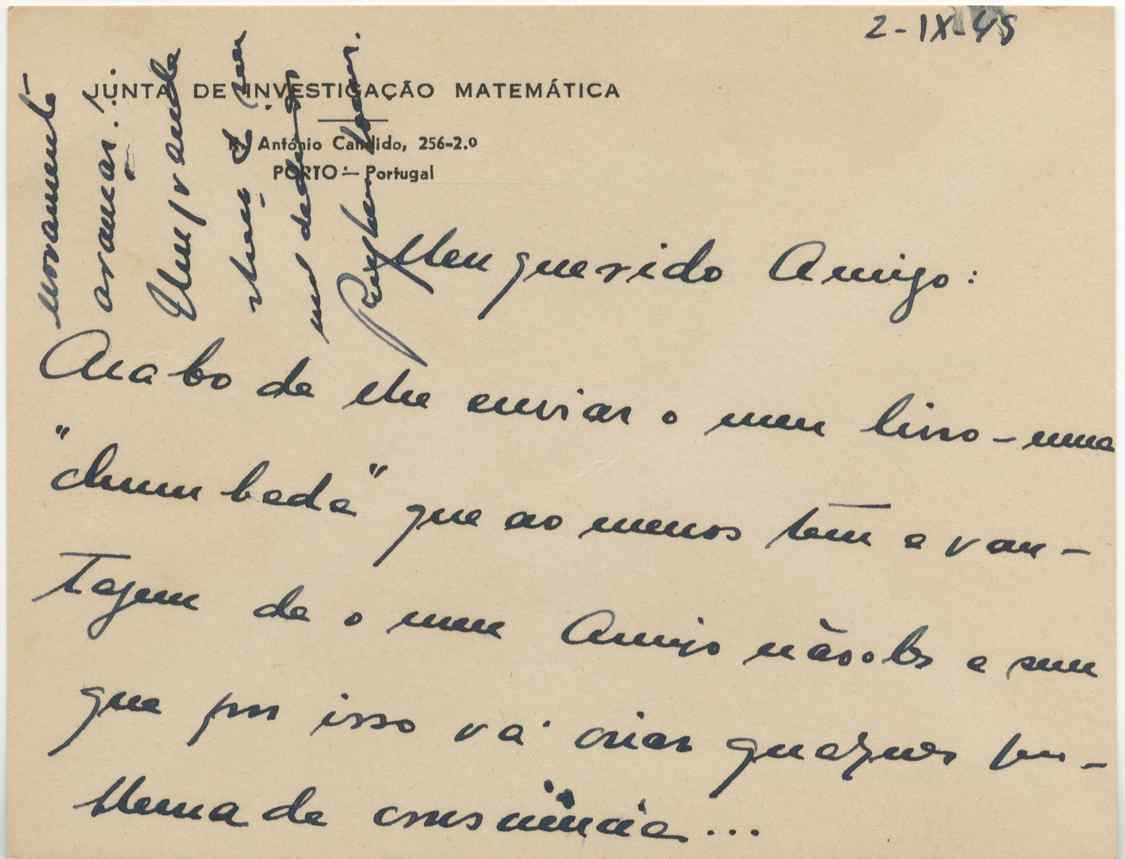 2-IX-45
JUNTA DE INVESTIGAÇÃO MATEMÁTICA
R. António Candido, 256-2.º
PORTO — Portugal
Meu querido Amigo:
Acabo de lhe enviar o meu livro – uma
"chumbada" que ao menos tem a van-
tagem de o meu Amigo não o ler e sem
que por isso vá criar qualquer pro-
blema de consciência...
novamente
arrancar!..
Um grande
abraço do seu